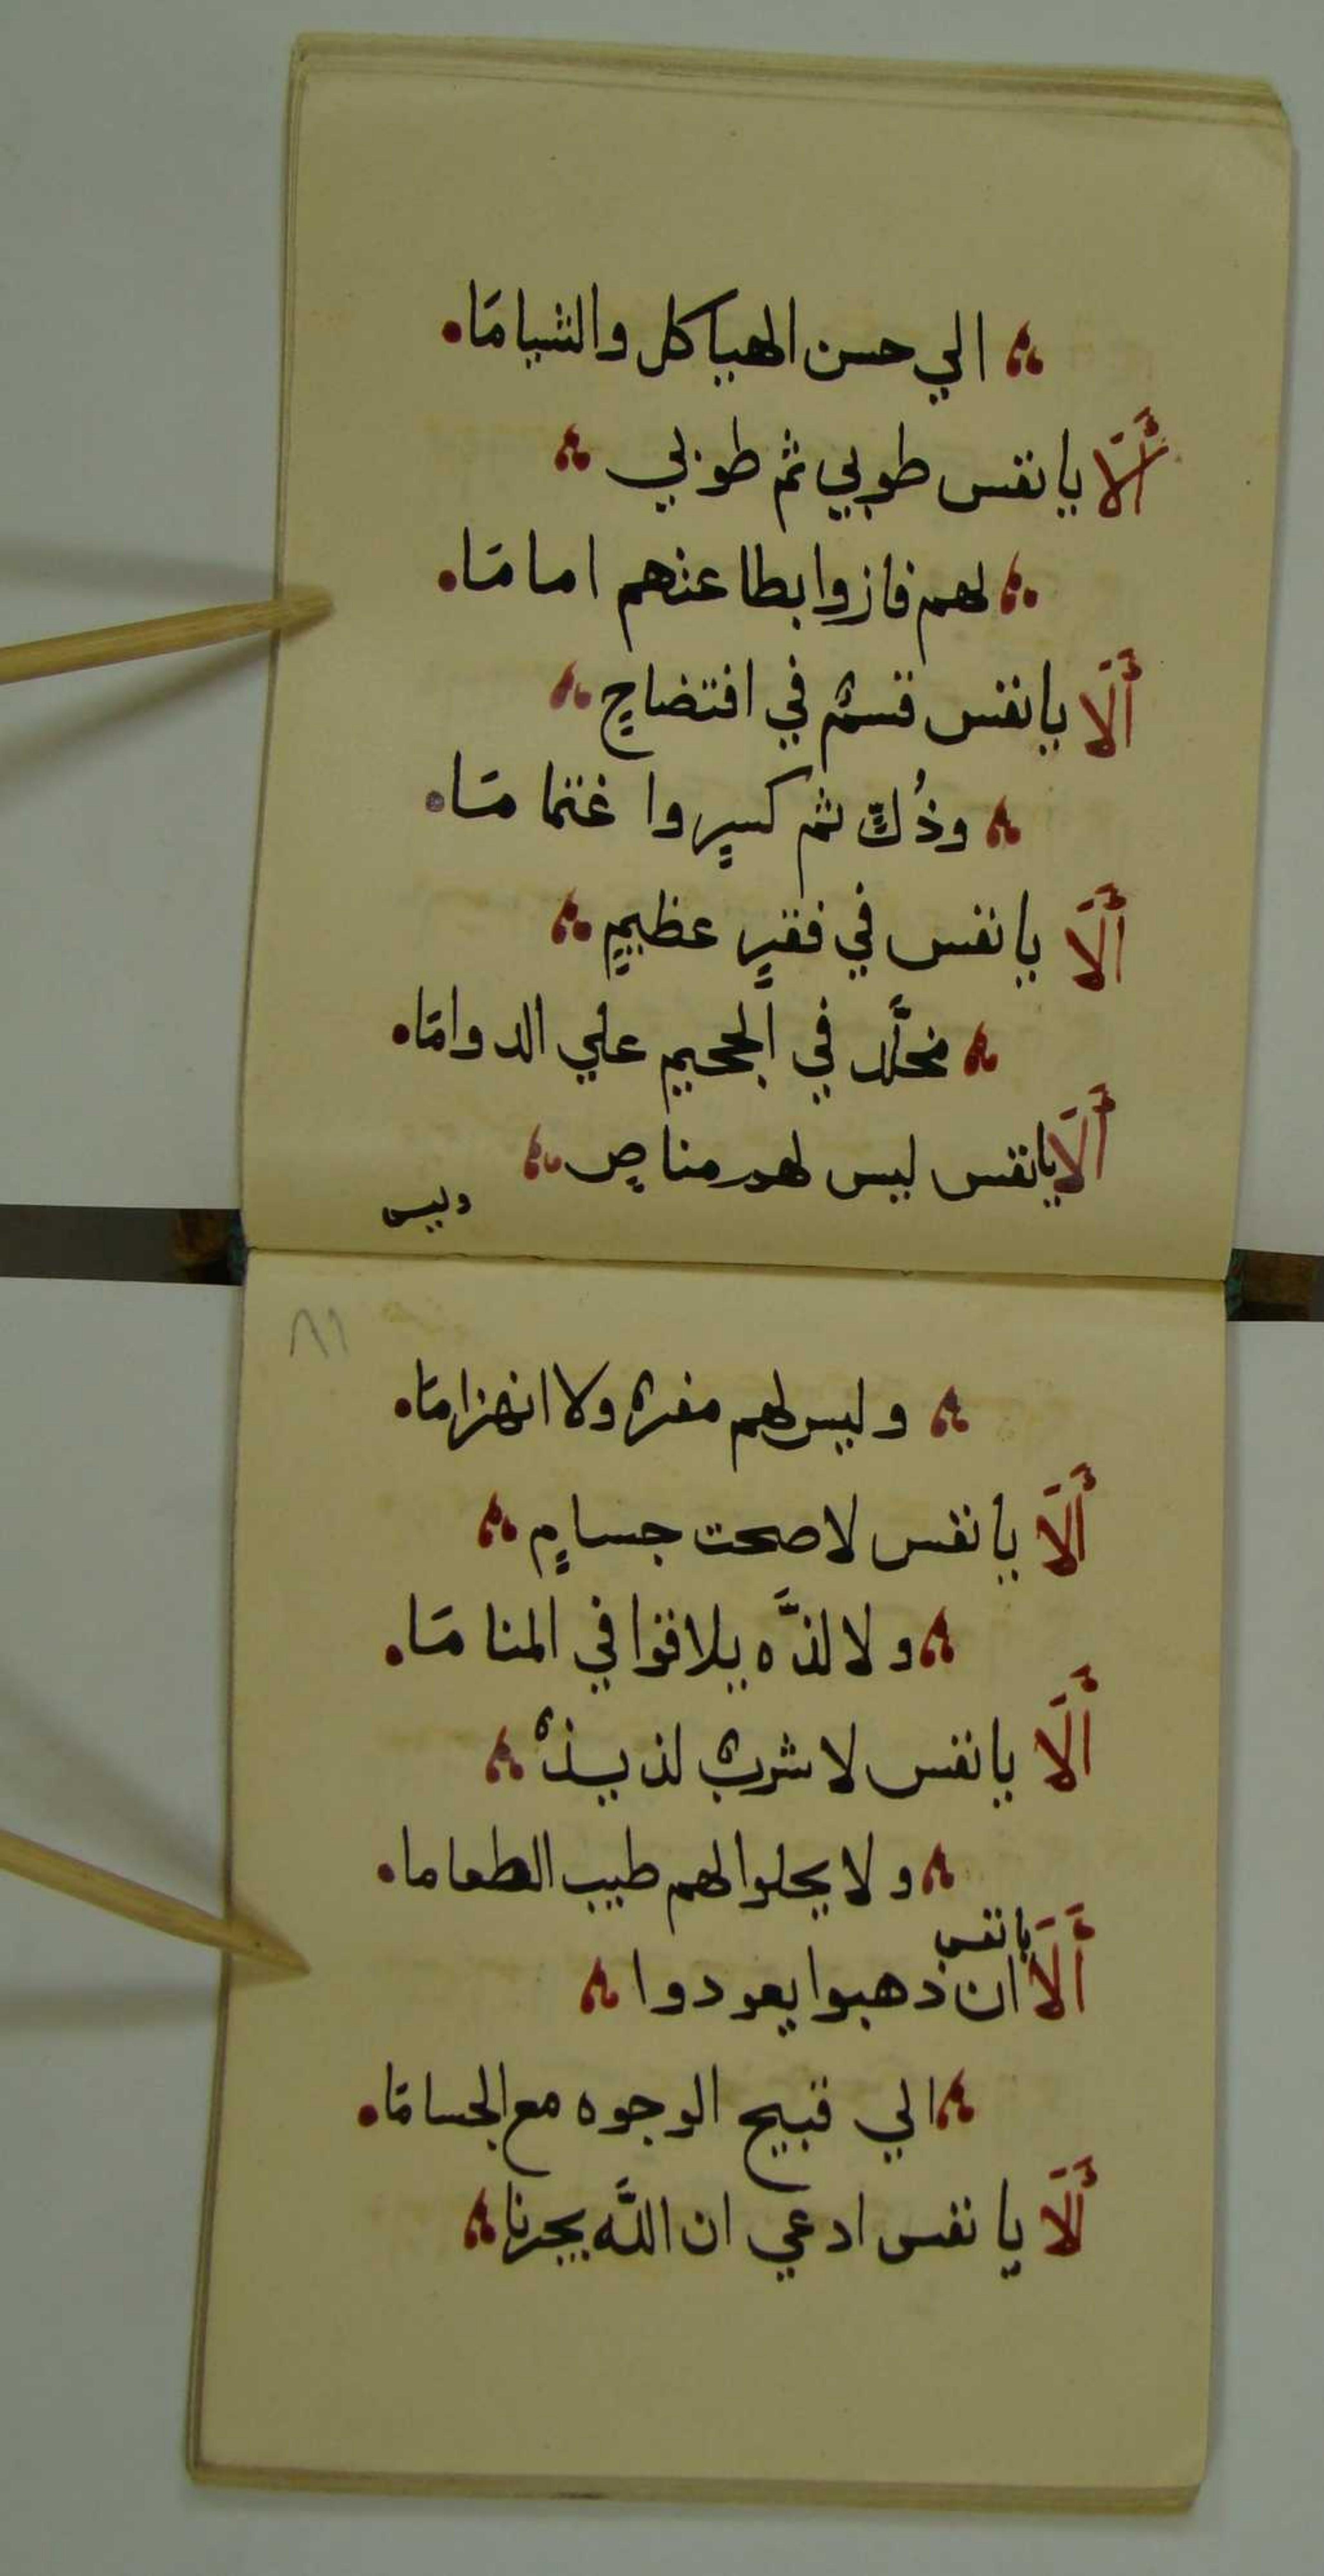 الي حسن الهياكل والشيامَا
أَلَا يا نفس طوبي ثم طوبي
لهم فازوا بطاعنهم امامَا
أَلَا يا نفس قسمٌ في افتضاحٍ
وذُلٍّ ثم كسرٍ وا غتمامَا
أَلَا يا نفس في فقرٍ عظيمٍ
مخلَّد في الجحيم علي الدوامَا
أَلَا يا نفس ليس لهم مناصٍ
وليس
٨٦
وليس لهم مفرٌ ولا انهزامَا
أَلَا يا نفس لا صحت جسامٍ
ولا لذَّه يلاقوا في المنامَا
أَلَا يا نفس لا شربٌ لذيذٌ
ولا يحلوا لهم طيب الطعاما
أَلَا يا نفس ان ذهبوا يعودوا
الي قبيح الوجوه مع الجسامَا
أَلَا يا نفس ادعي ان اللَّه يجرنا